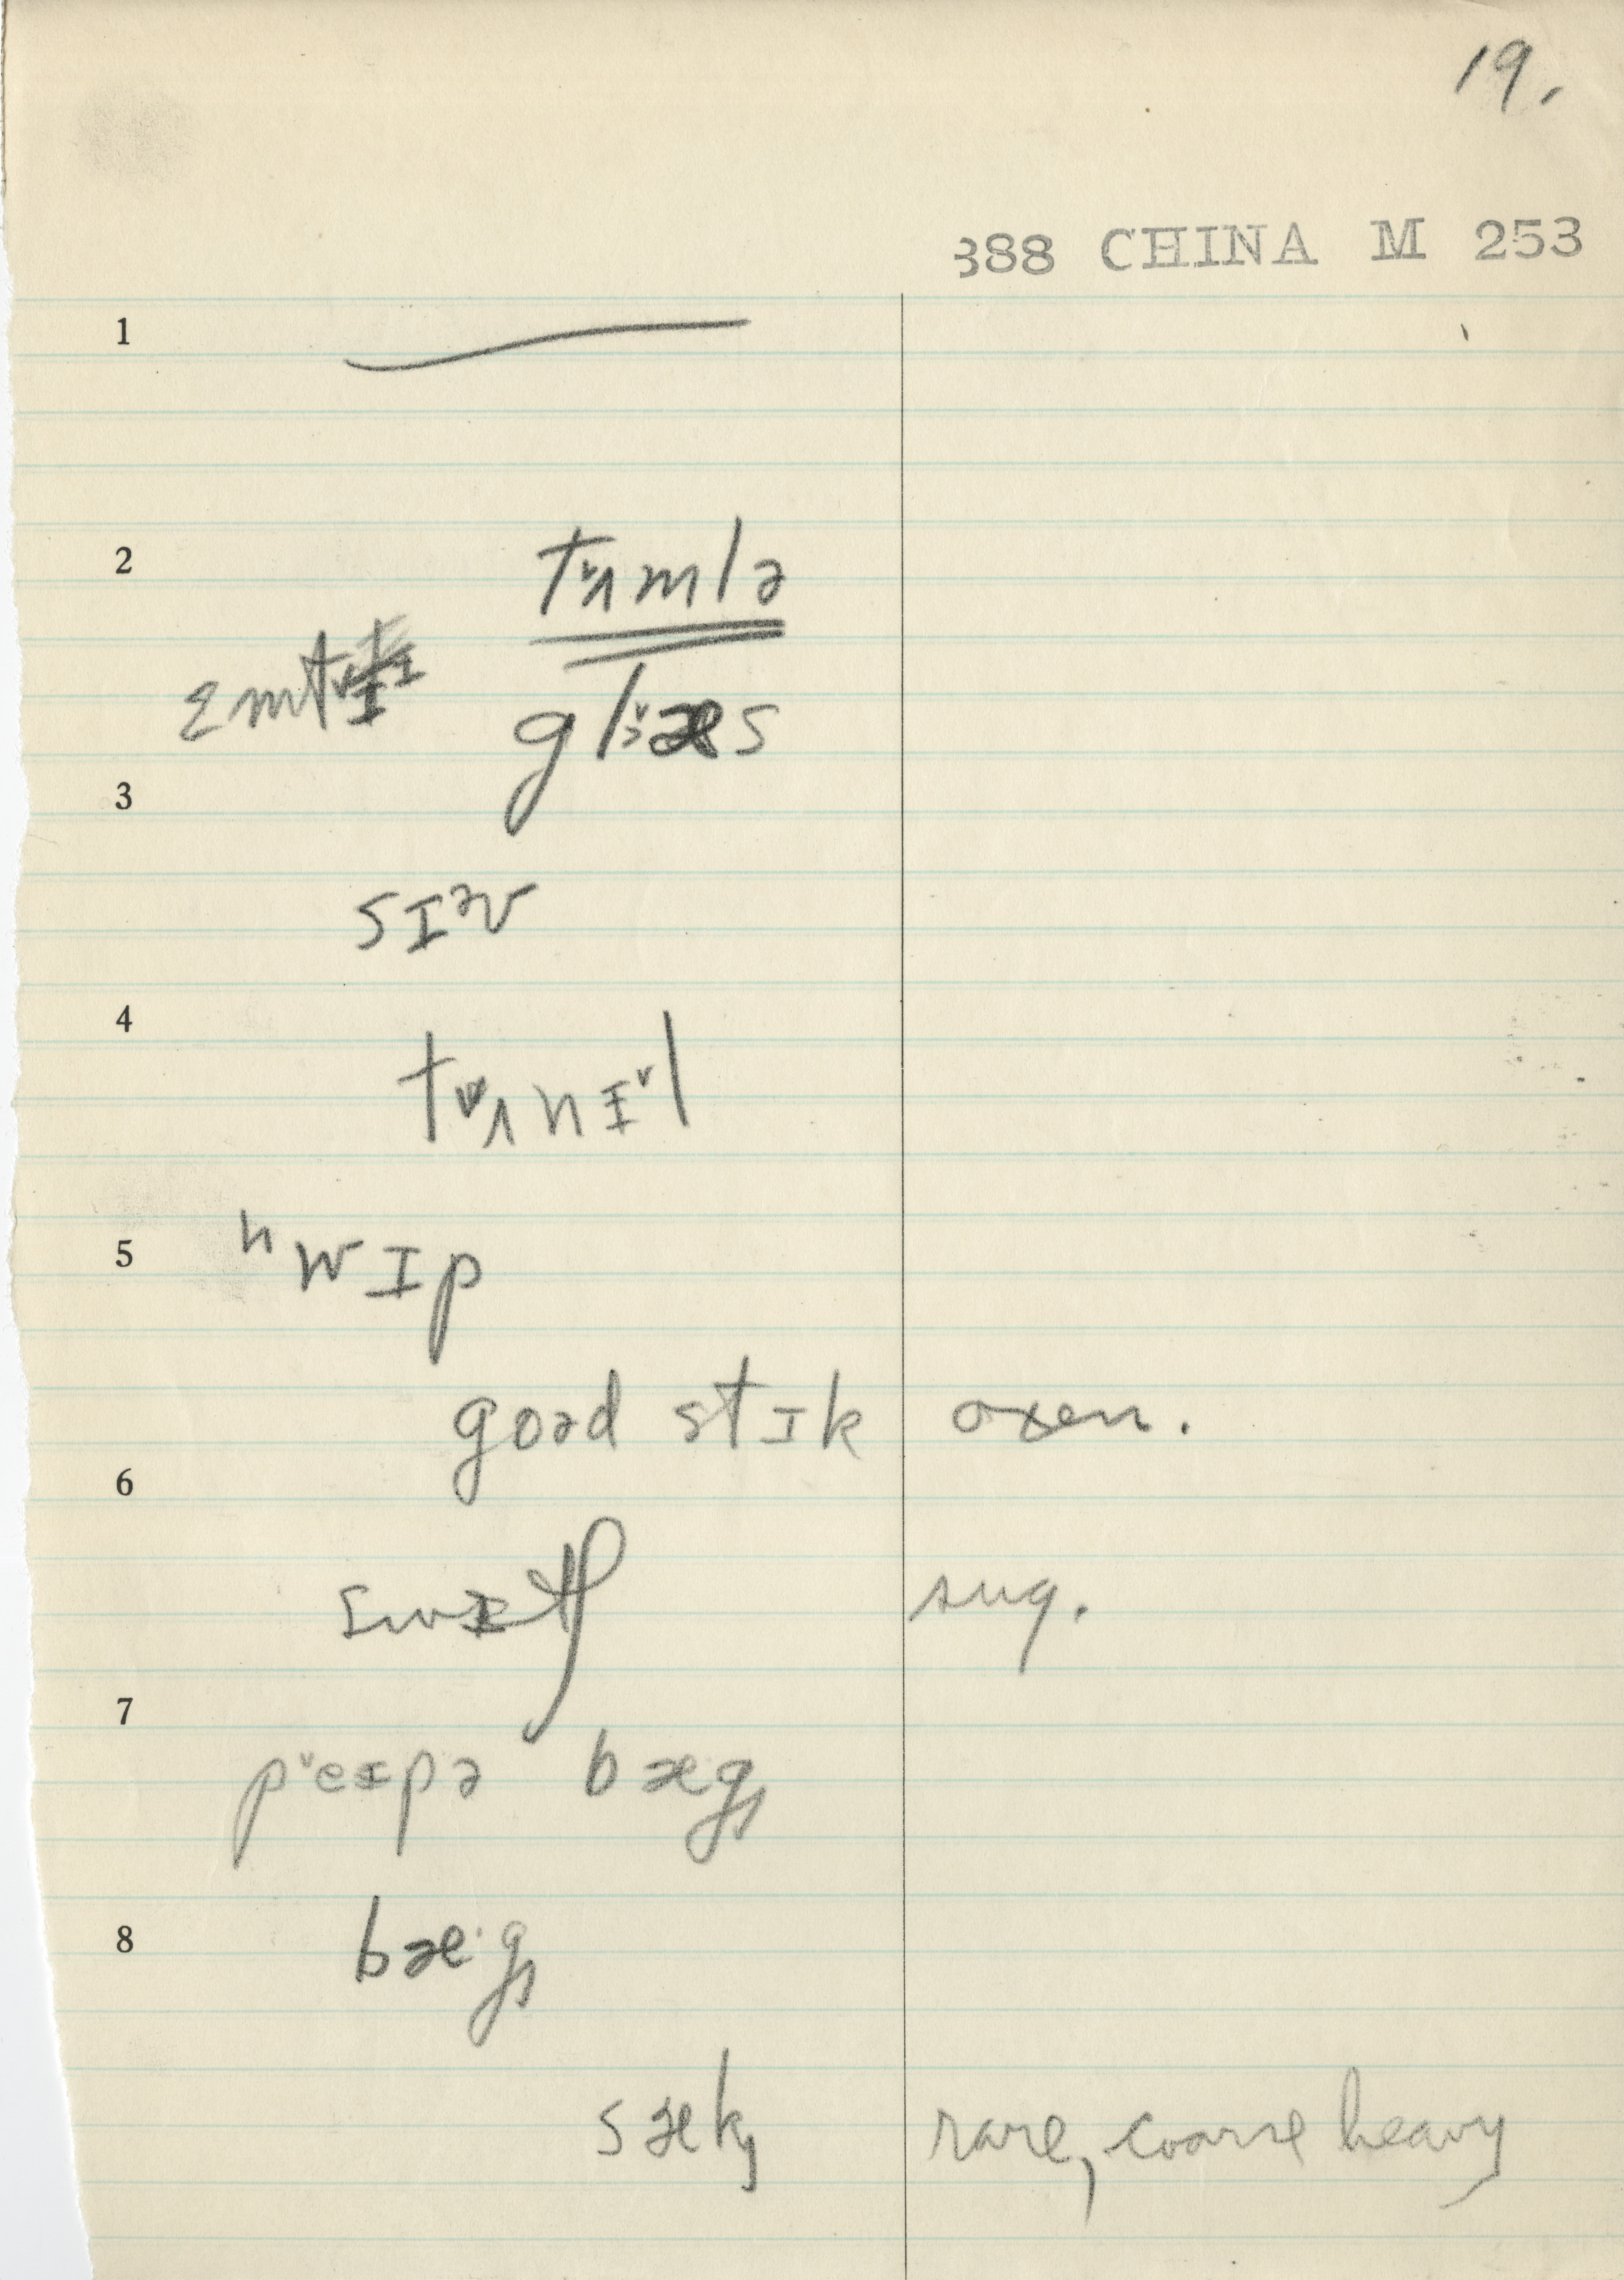 19.
388 CHINA M 253
1
2
tʌ̌mlə
ɛmt
glæs
3
sɪᵊv
4
tʌnɪ̌l
5
ʰwɪp
goəd stɪk oxen.
6
sug.
7
pˇeɪpə bægȷ
8
bæ·gȷ
sækȷ rare, coarse heavy